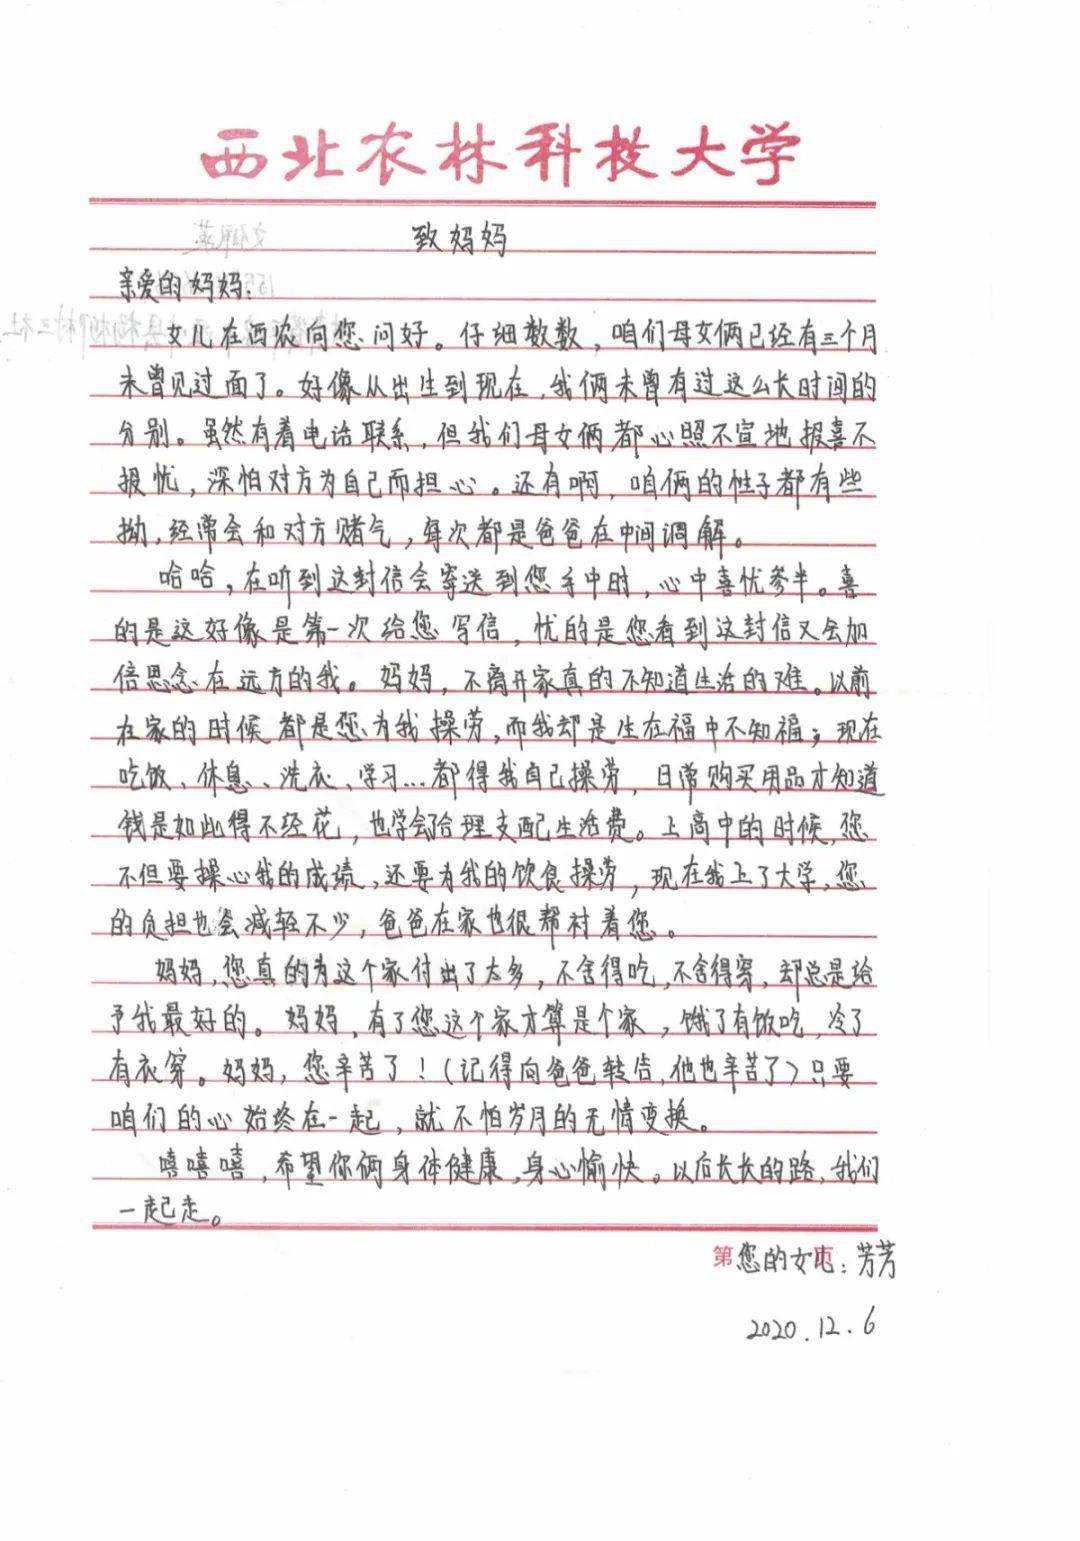 西北农林科技大学
致妈妈
亲爱的妈妈：
女儿在西农向您问好。仔细数数，咱们母女俩已经有三个月
未曾见过面了。好像从出生到现在，我俩未曾有过这么长时间的
分别。虽然有着电话联系，但我们母女俩都心照不宣地报喜不
报忧，深怕对方为自己而担心。还有啊，咱俩的性子都有些
拗，经常会和对方赌气，每次都是爸爸在中间调解。
哈哈，在听到这封信会寄送到您手中时，心中喜忧参半。喜
的是这好像是第一次给您写信，忧的是您看到这封信又会加
倍思念在远方的我。妈妈，不离开家真的不知道生活的难。以前
在家的时候都是您为我操劳，而我却是生在福中不知福；现在
吃饭、休息、洗衣、学习...都得我自己操劳，日常购买用品才知道
钱是如此得不经花，也学会合理支配生活费。上高中的时候，您
不但要操心我的成绩，还要为我的饮食操劳，现在我上了大学，您
的负担也会减轻不少，爸爸在家也很帮衬着您。
妈妈，您真的为这个家付出了太多，不舍得吃，不舍得穿，却总是给
予我最好的。妈妈，有了您这个家才算是个家，饿了有饭吃，冷了
有衣穿。妈妈，您辛苦了！（记得向爸爸转告，他也辛苦了）只要
咱们的心始终在一起，就不怕岁月的无情变换。
嘻嘻嘻，希望你俩身体健康，身心愉快。以后长长的路，我们
一起走。
第 页
您的女儿：芳芳
2020.12.6